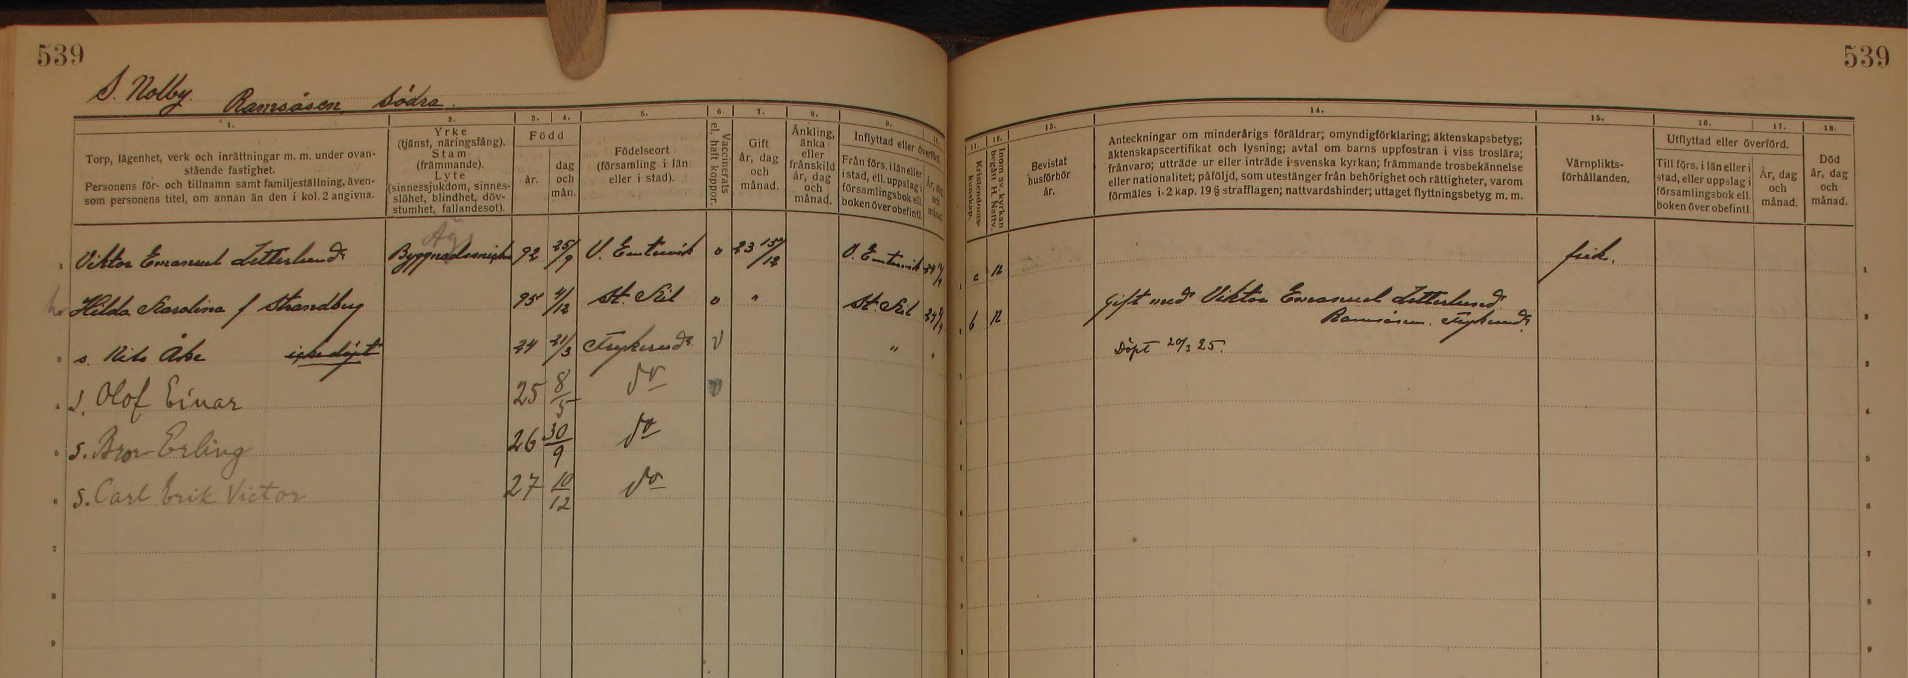 539
539
S. Nolby. Ramsåsen Södra.
1.
Torp, lägenhet, verk och inrättningar m. m. under ovan-
stående fastighet.
Personens för- och tillnamn samt familjeställning, även-
som personens titel, om annan än den i kol. 2 angivna.
2.
Yrke
(tjänst, näringsfång).
Stam
(främmande).
Lyte
(sinnessjukdom, sinnes-
slöhet, blindhet, döv-
stumhet, fallandesot).
3. 4.
Född
år.
dag
och
mån.
5.
Födelseort
(församling i län
eller i stad).
6.
Vaccinerats
el. haft koppor.
7.
Gift
år, dag
och
månad.
8.
Änkling,
änka
eller
frånskild
år, dag
och
månad.
9. 10.
Inflyttad eller överförd.
Från förs. i län eller
i stad, ell. uppslag i
församlingsbok ell.
boken över obefintl.
År, dag
och
månad.
11.
Kristendoms-
kunskap.
12.
Inom sv. kyrkan
begått H. Nattv.
13.
Bevistat
husförhör
år.
14.
Anteckningar om minderårigs föräldrar; omyndigförklaring; äktenskapsbetyg;
äktenskapscertifikat och lysning; avtal om barns uppfostran i viss troslära;
frånvaro; utträde ur eller inträde i svenska kyrkan; främmande trosbekännelse
eller nationalitet; påföljd, som utestänger från behörighet och rättigheter, varom
förmäles i 2 kap. 19 § strafflagen; nattvardshinder; uttaget flyttningsbetyg m. m.
15.
Värnplikts-
förhållanden.
16. 17.
Utflyttad eller överförd.
Till förs. i län eller i
stad, eller uppslag i
församlingsbok ell.
boken över obefintl
År, dag
och
månad.
18.
Död
år, dag
och
månad.
1 Viktor Emanuel Zetterlund 92 25/9 V. Emtervik o 23 15/12 V. Emtervik c 12 1
Hilda Karolina f Strandberg 95 4/12 St. Kil o " St. Kil b 12 Gift med Viktor Emanuel Zetterlund 2
Ramsåsen. Frykerud.
3 s. Nils Åke icke döpt 24 21/3 Frykerud v " " Döpt 20/3 25. 3
4 s. Olof Einar 25 8/5 do v 4
5 s. Bror Erling 26 30/9 do 5
6 s. Carl Erik Victor 27 10/12 do 6
7 7
8 8
9 9